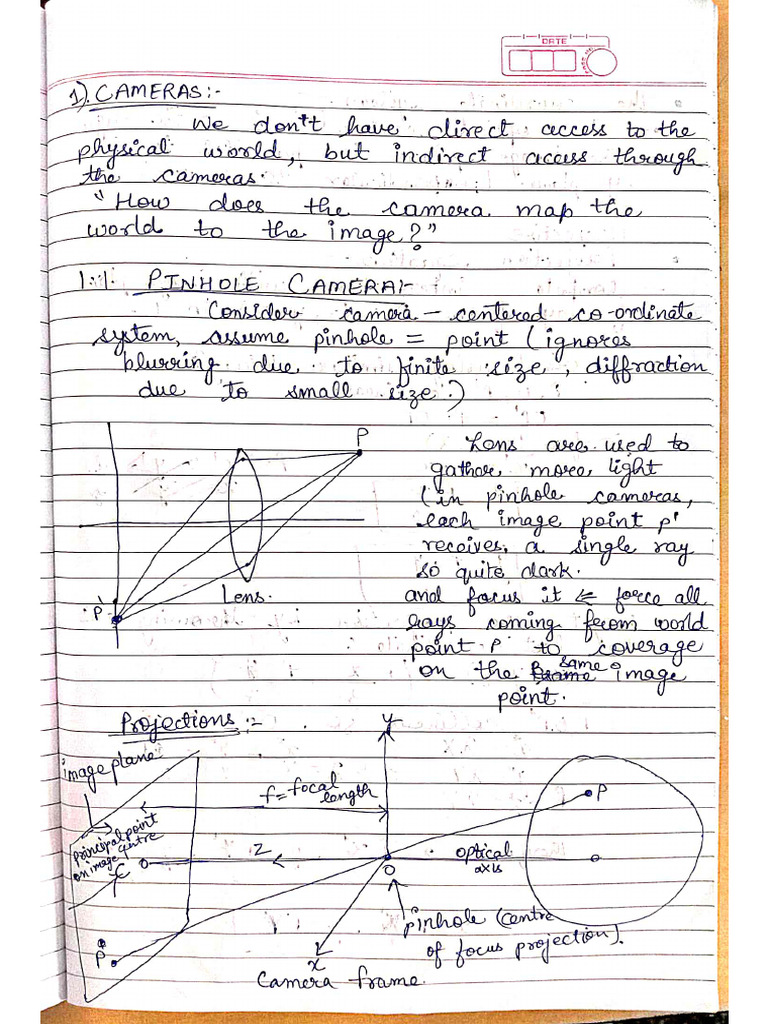 DATE
1). CAMERAS:-
We don't have direct access to the
physical world, but indirect access through
the cameras.
"How does the camera map the
world to the image?"
1.1. PINHOLE CAMERA:-
Consider camera - centered co-ordinate
system, assume pinhole = point (ignores
blurring due to finite size, diffraction
due to small size.)
P
Lens are used to
gather more light
(in pinhole cameras,
each image point p'
receives a single ray
so quite dark.
and focus it ⇐ force all
rays coming from world
point P to coverage
on the same image
point.
P'
Lens.
Projections :-
image plane
y
f = focal length
P
principal point
on image centre
C
Z
O
optical
axis
P
pinhole (centre
of focus projection).
x
Camera frame.